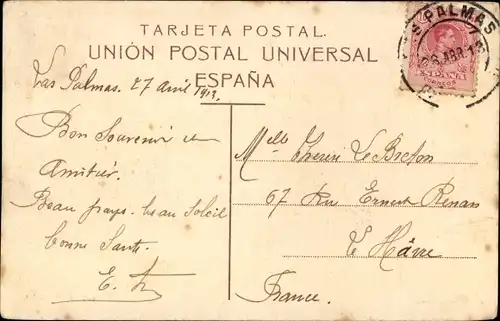 TARJETA POSTAL.
UNIÓN POSTAL UNIVERSAL
ESPAÑA
S PALMAS
28 ABR 13
ESPAÑA
CORREOS
Las Palmas. 27 Avril 1913.
Bon Souvenir et
Amitiés.
Beau pays. beau soleil
bonne Santé.
E.
Melle Le Breton
67 Rue Ernest Renan
Le Hâvre
France.